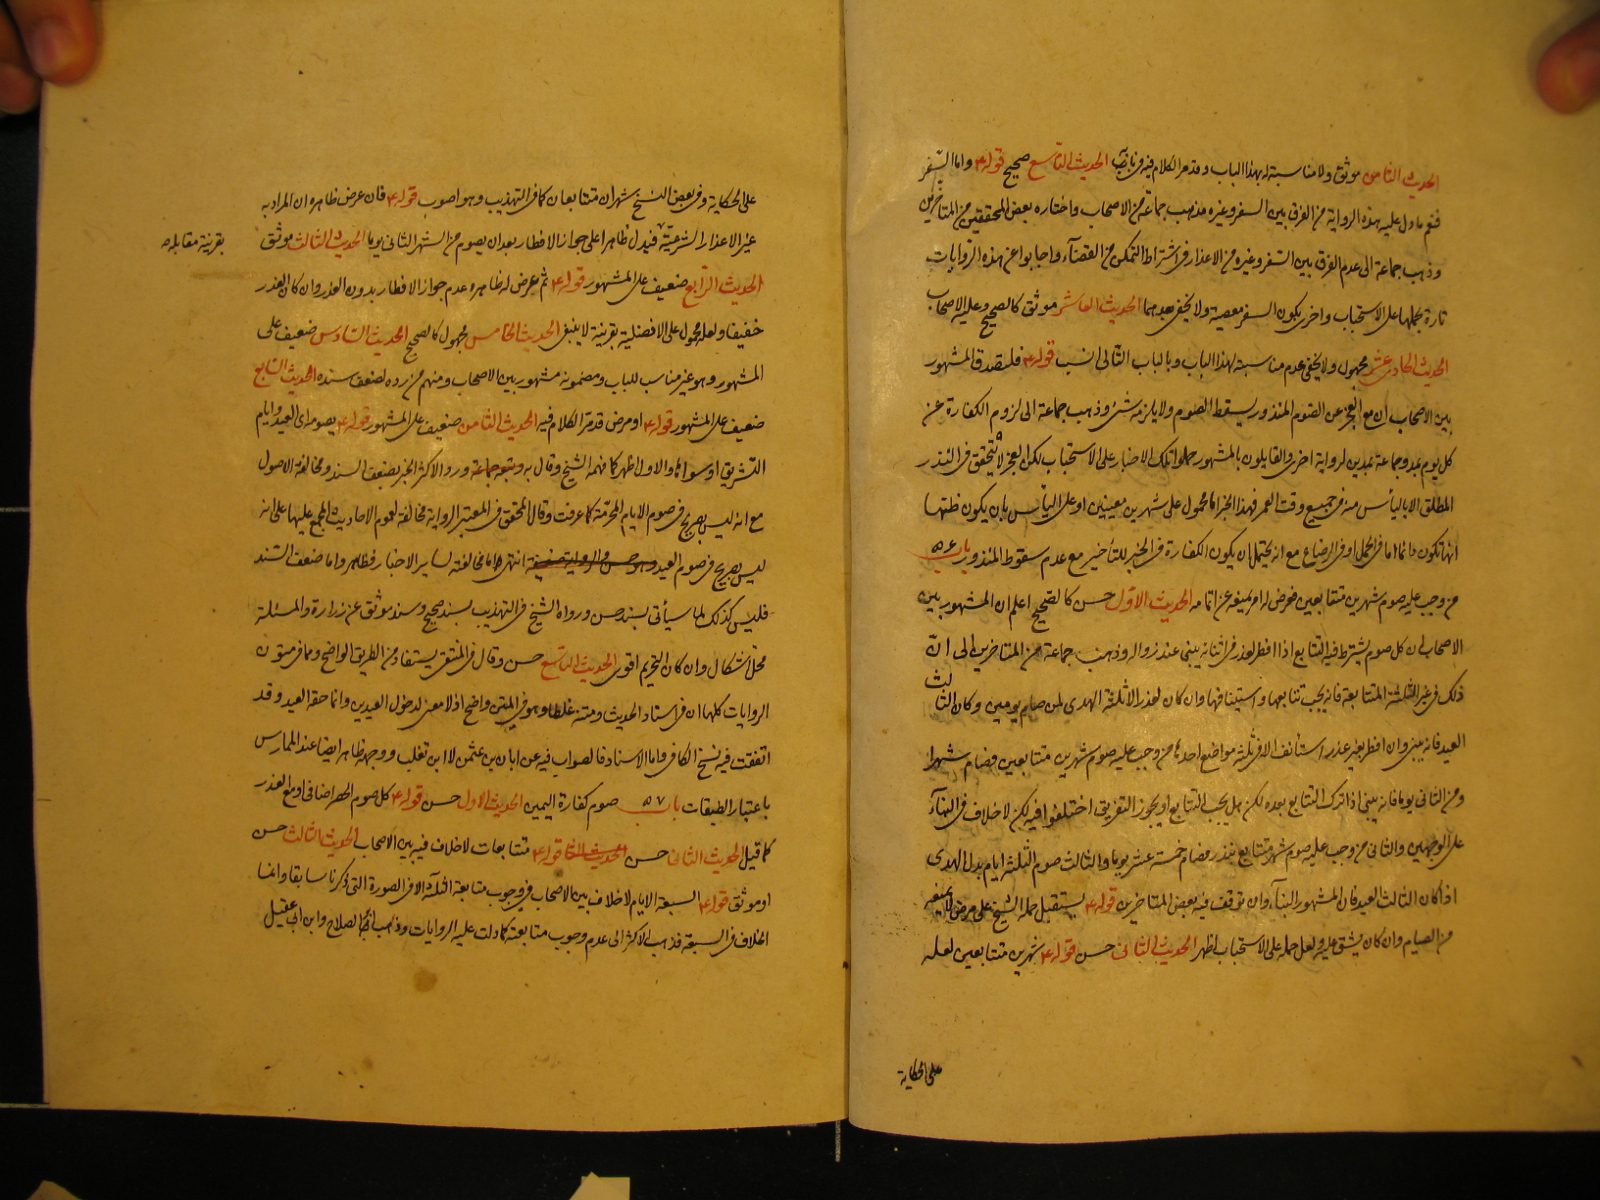 الحديث الثامن موثق ولا مناسبة له بهذا الباب وقد مر الكلام فيه في بابه الحديث التاسع صحيح قوله ع واما السفر
فنعم ما دل عليه هذه الرواية من الفرق بين السفر وغيره مذهب جماعة من الاصحاب واختاره بعض المحققين من المتأخرين
وذهب جماعة الى عدم الفرق بين السفر وغيره من الاعذار في اشتراط التمكن من القضآء واجابوا عن هذه الروايات
تارة بحملها على الاستحباب واخرى بكون السفر معصية ولا يخفى بعدهما الحديث العاشر موثق كالصحيح وعليه الاصحاب
الحديث الحادي عشر مجهول ولا يخفى عدم مناسبة لهذا الباب وبالباب الثاني انسب قوله ع فليتصدق المشهور
بين الاصحاب ان مع العجز عن الصوم المنذور يسقط الصوم ولا يلزمه شئ وذهب جماعة الى لزوم الكفارة عن
كل يوم بمد وجماعة بمدين لرواية اخرى والقايلون بالمشهور حملوا تلك الاخبار على الاستحباب لكن العجز لا يتحقق في النذر
المطلق الا باليأس منه في جميع وقت العمر فهذا الخبر اما محمول على شهرين معينين او على اليأس بان يكون ظنها
انها تكون دائما اما في الحمل او في الرضاع مع انه يحتمل ان يكون الكفارة في الخبر للتأخير مع عدم سقوط المنذور باب ٥۶
من وجب عليه صوم شهرين متتابعين فعرض له امر يمنعه عن اتمامه الحديث الاول حسن كالصحيح اعلم ان المشهور بين
الاصحاب ان كل صوم يشترط فيه التتابع اذا افطر لعذر في اثنائه يبنى عند زواله وذهب جماعة من المتاخرين الى ان
ذلك في غير الثلثة المتتابعة فانه يجب تتابعها واستينافها وان كان لعذر الا ثلثة الهدي لمن صام يومين وكان الثالث
العيد فانه يبنى وان افطر بغير عذر استأنف الا في ثلثة مواضع احدها من وجب عليه صوم شهرين متتابعين فصام شهرا
ومن الثاني يوما فانه يبنى اذا ترك التتابع بعده لكن هل يجب التتابع او يجوز التفريق اختلفوا فيه لكن لا خلاف في البنآء
على الوجهين والثاني من وجب عليه صوم شهر متتابع بنذر فصام خمسة عشر يوما والثالث صوم الثلثة ايام بدل الهدي
اذا كان الثالث العيد فان المشهور البنآء وان توقف فيه بعض المتاخرين قوله ع يستقبل حمله الشيخ على مرض لا يمنعه
من الصيام وان كان يشق عليه ولعل حمله على الاستحباب اظهر الحديث الثاني حسن قوله ع شهرين متتابعين لعله
على الحكاية
على الحكاية وفي بعض النسخ شهران متتابعان كما في التهذيب وهو اصوب قوله ع فان عرض ظاهره ان المراد به
غير الاعذار الشرعية فيدل ظاهرا على جواز الافطار بعد ان يصوم من الشهر الثاني يوما الحديث الثالث موثق
بقرينة مقابله صه
الحديث الرابع ضعيف على المشهور قوله ع ثم يعرض له ظاهره عدم جواز الافطار بدون العذر وان كان العذر
خفيفا ولعله محمول على الافضلية بقرينة لا ينبغي الحديث الخامس مجهول كالصحيح الحديث السادس ضعيف على
المشهور وهو غير مناسب للباب ومضمونه مشهور بين الاصحاب ومنهم من رده لضعف سنده الحديث السابع
ضعيف على المشهور قوله ع او مرض قد مر الكلام فيه الحديث الثامن ضعيف على المشهور قوله ع يصوم اى العيد وايام
التشريق او سواها والاول اظهر كما فهمه الشيخ وقال به وتبعه جماعة ورد الاكثر الخبر بضعف السند ومخالفة الاصول
مع انه ليس بصريح في صوم الايام المحرمة كما عرفت وقال المحقق في المعتبر الرواية مخالفة لعموم الاحاديث المجمع عليها على انه
ليس بصريح في صوم العيد وهو حسن والرواية ضعيفة انتهى واما مخالفته لساير الاخبار فظاهر واما ضعف السند
فليس كذلك لما سيأتى بسند حسن ورواه الشيخ في التهذيب بسند صحيح وسند موثق عن زرارة والمسئلة
محل اشكال وان كان التحريم اقوى الحديث التاسع حسن وقال في المنتقى يستفاد من الطريق الواضح ومما في متون
الروايات كلها ان في اسناد الحديث ومتنه غلطا وهو في المتن واضح اذ لا معنى لدخول العيدين وانما حقه العيد وقد
اتفقت فيه نسخ الكافى واما الاسناد فالصواب فيه عن ابان بن عثمن لا ابن تغلب ووجهه ظاهر ايضا عند الممارس
باعتبار الطبقات باب ٥٧ صوم كفارة اليمين الحديث الاول حسن قوله ع كل صوم الحصر اضافى او مع العذر
كما قيل الحديث الثانى حسن الحديث الثالث قوله ع متتابعات لا خلاف فيه بين الاصحاب الحديث الثالث حسن
او موثق قوله ع السبعة الايام لا خلاف بين الاصحاب في وجوب متابعة الثلثة الا في الصورة التى ذكرنا سابقا وانما
الخلاف في السبعة فذهب الاكثر الى عدم وجوب متابعته كما دلت عليه الروايات وذهب ابو الصلاح وابن ابى عقيل